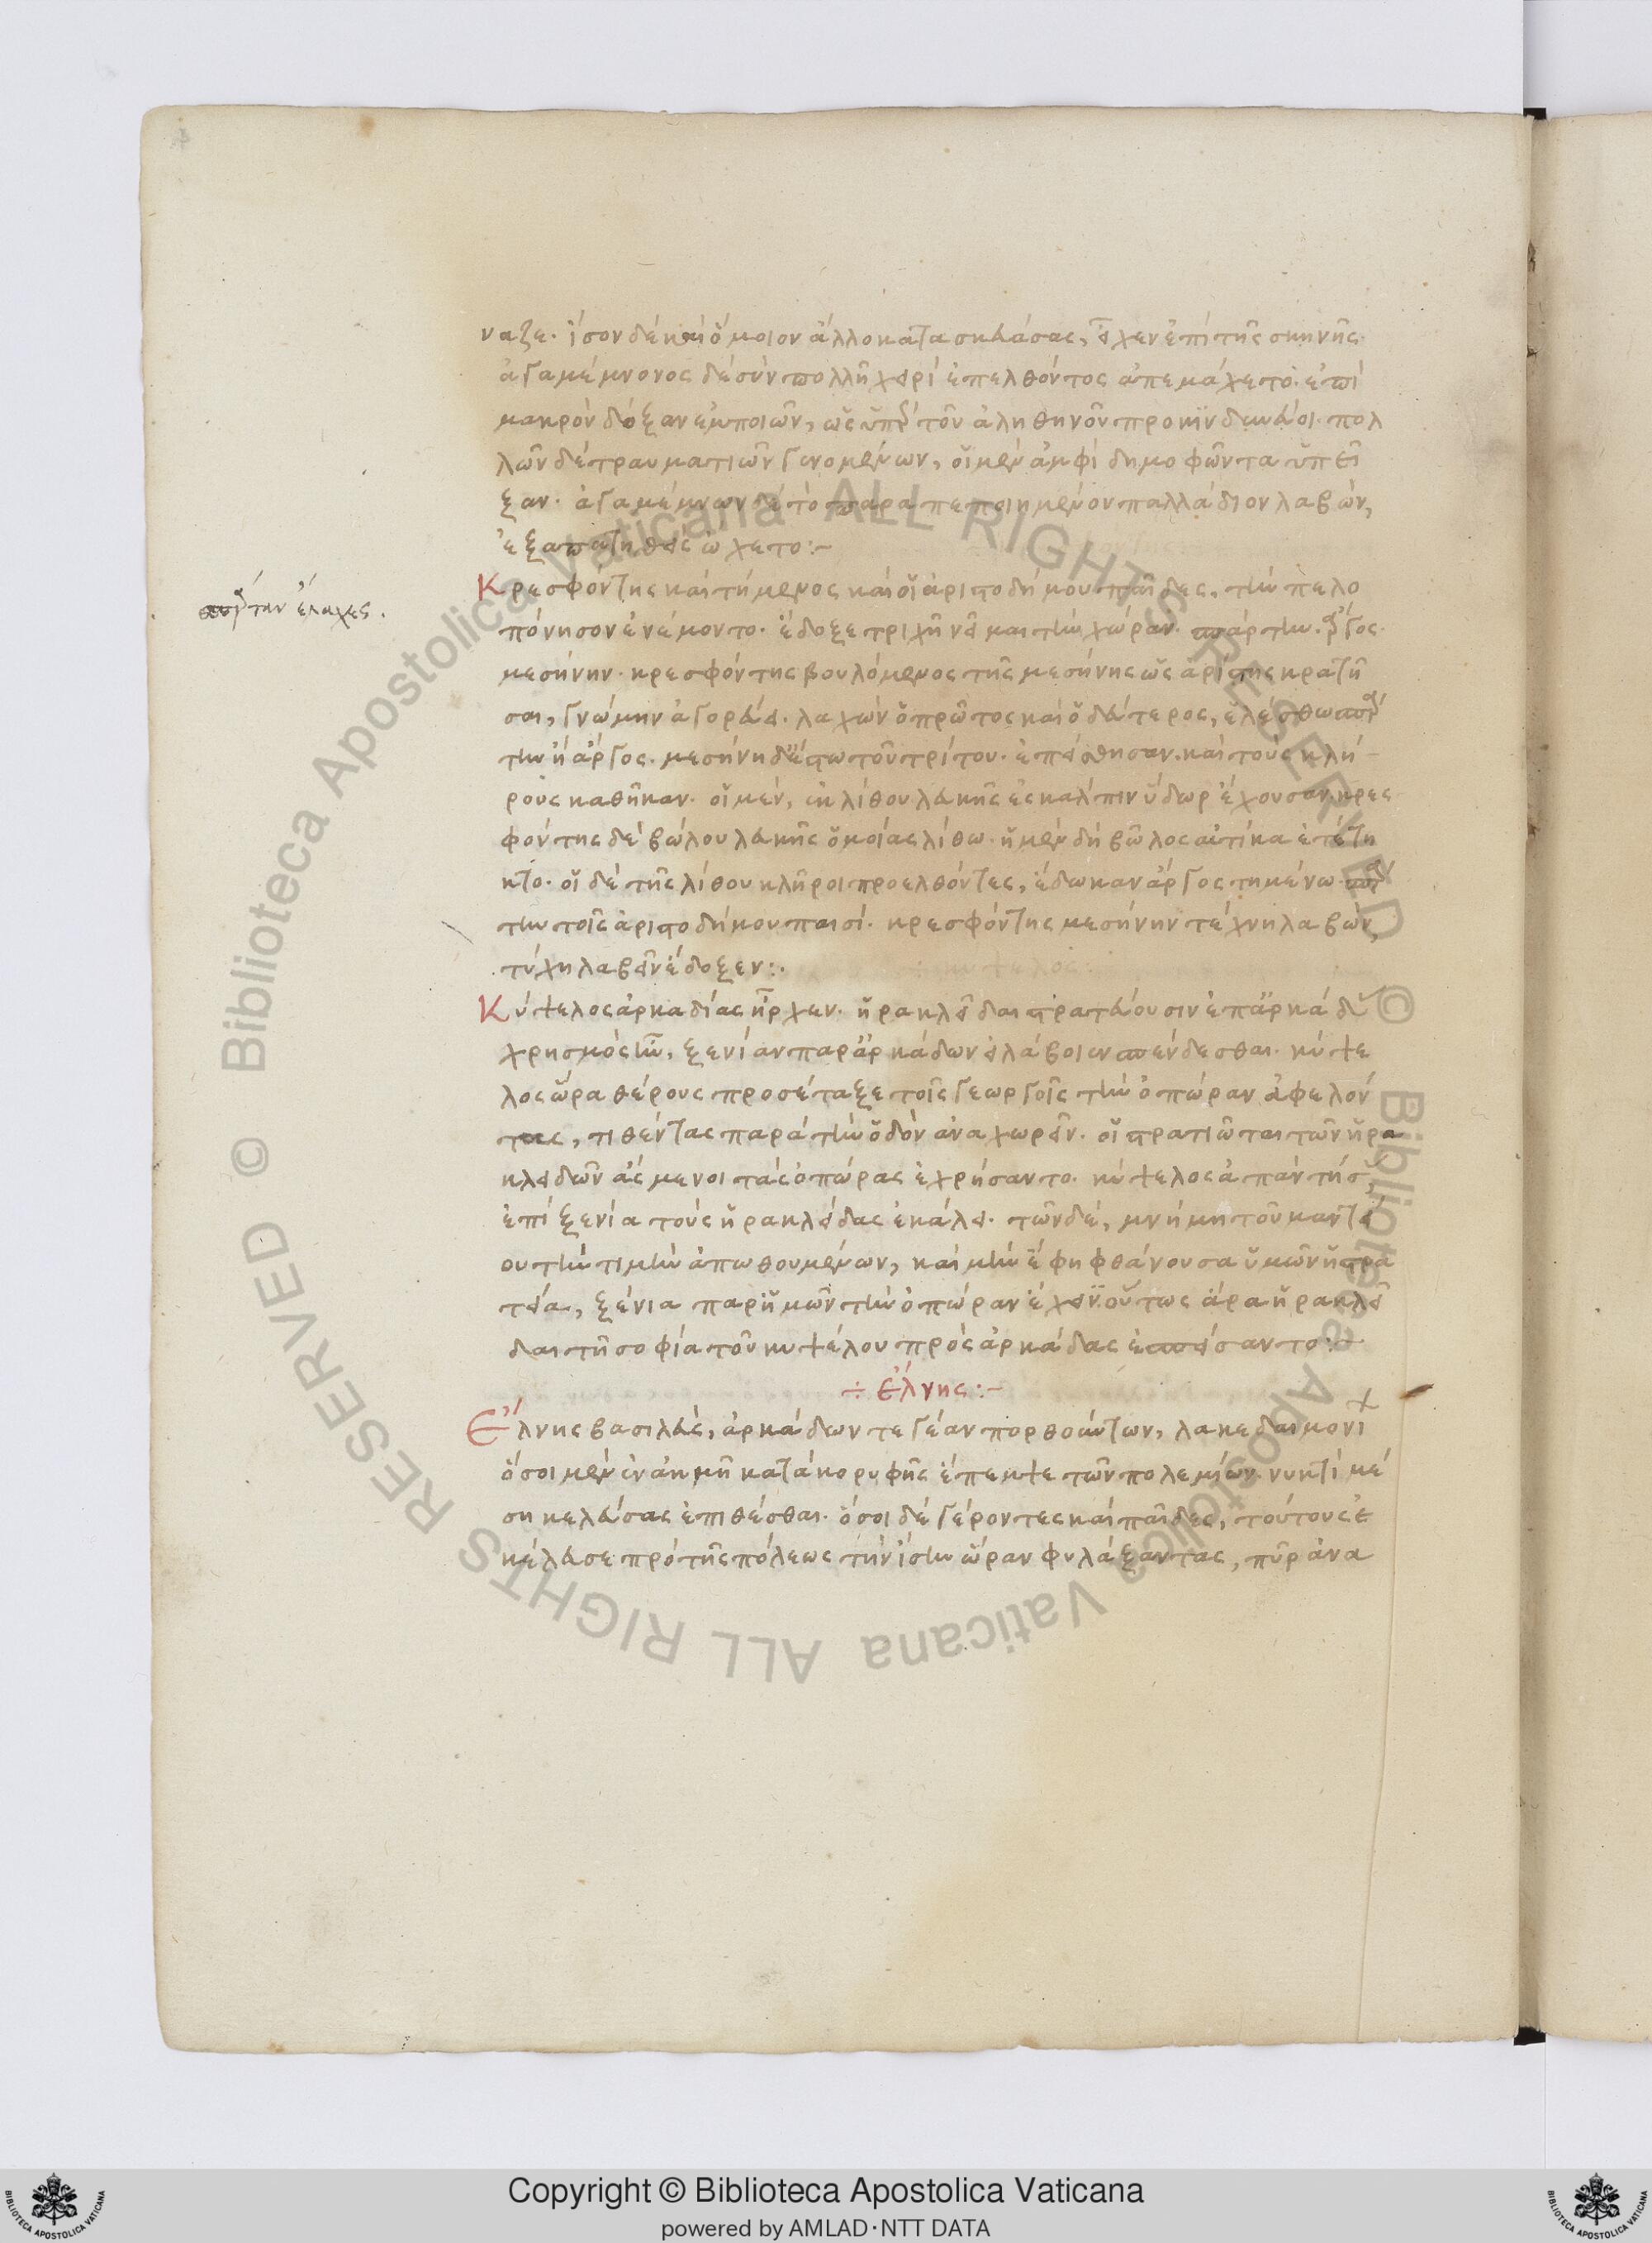 ναζε. ἴσον δὲ καὶ ὅμοιον ἄλλο κατασκευάσας, εἶχεν ἐπὶ τῆς σκηνῆς.
ἀγαμέμνονος δὲ σὺν πολλῆ χειρὶ ἐπελθόντος ἀπεμάχετο. ἐπὶ
μακρὸν δόξαν ἐμποιῶν, ὡς ὑπὲρ τοῦ ἀληθηνοῦ προκινδυνεύοι. πολ
λῶν δὲ τραυματιῶν γενομένων, οἱ μὲν ἀμφὶ δημοφῶντα ὕπει
ξαν. ἀγαμέμνων δὲ τὸ παραπεποιημένον παλλάδιον λαβὼν,
ἐξαπατηθεὶς ὤχετο:-
σπάρταν ἔλαχες.
Κρεσφόντης καὶ τήμενος καὶ οἱ ἀριστοδήμου παῖδες, τὴν πελο
πόνησον ἐνέμοντο. ἔδοξε τριχῆ νεῖμαι τὴν χώραν. σπάρτην. ἄργος.
μεσήνην. κρεσφόντης βουλόμενος τῆς μεσήνης ὡς ἀρίστης κρατῆ
σαι, γνώμην ἀγορεύει. λαχὼν ὁ πρῶτος καὶ ὁ δεύτερος, ἑλέσθω σπάρ
την ἢ ἄργος. μεσήνη δὲ ἔστω τοῦ τρίτου. ἐπείσθησαν. καὶ τοὺς κλή
ρους καθῆκαν. οἱ μὲν, ἐκ λίθου λευκῆς ἐς κάλπιν ὕδωρ ἔχουσαν. κρες
φόντης δὲ βώλου λευκῆς ὁμοίας λίθω. ἡ μὲν δὴ βῶλος αὐτίκα ἐτέτη
κτο. οἱ δὲ τῆς λίθου κλῆροι προελθόντες, ἔδωκαν ἄργος τημένω. σπάρ
την τοῖς ἀριστοδήμου παισί. κρεσφόντης μεσήνην τέχνη λαβὼν,
τύχη λαβεῖν ἔδοξεν:.
Κύψελος ἀρκαδίας ἦρχεν. ἡρακλεῖδαι στρατεύουσιν ἐπ' ἀρκάδας
χρησμὸς ἦν, ξενίαν παρ' ἀρκάδων εἰ λάβοιεν σπένδεσθαι. κύψε
λος ὥρα θέρους προσέταξε τοῖς γεωργοῖς τὴν ὀπώραν ἀφελόν
τας, τιθέντας παρὰ τὴν ὁδὸν ἀναχωρεῖν. οἱ στρατιῶται τῶν ἡρα
κλειδῶν ἄσμενοι ταῖς ὀπώραις ἐχρήσαντο. κύψελος ἀπαντήσας
ἐπὶ ξενία τοὺς ἡρακλείδας ἐκάλει. τῶν δὲ, μνήμη τοῦ μαντεί
ου τὴν τιμὴν ἀπωθουμένων, καὶ μὴν ἔφη φθάνουσα ὑμῶν ἡ στρα
τεία, ξένια παρ' ἡμῶν τὴν ὀπώραν ἔχειν. οὕτως ἄρα ἡρακλεῖ
δαι τῆ σοφία τοῦ κυψέλου πρὸς ἀρκάδας ἐσπείσαντο:-
÷ Ἔλνης:-
Ἔλνης βασιλεὺς, ἀρκάδων τεγέαν πορθούντων, λακεδαιμονί
ὅσοι μὲν ἐν ἀκμῆ κατὰ κορυφῆς ἔπεμψε τῶν πολεμίων. νυκτὶ μέ
ση κελεύσας ἐπιθέσθαι. ὅσοι δὲ γέροντες καὶ παῖδες, τούτους ἐ
κέλευσε πρὸ τῆς πόλεως τὴν ἴσην ὥραν φυλάξαντας, πῦρ ἀνα
© Biblioteca Apostolica Vaticana ALL RIGHTS RESERVED
© Biblioteca Apostolica Vaticana ALL RIGHTS RESERVED
Copyright © Biblioteca Apostolica Vaticana
powered by AMLAD・NTT DATA
BIBLIOTECA APOSTOLICA VATICANA
BIBLIOTECA APOSTOLICA VATICANA